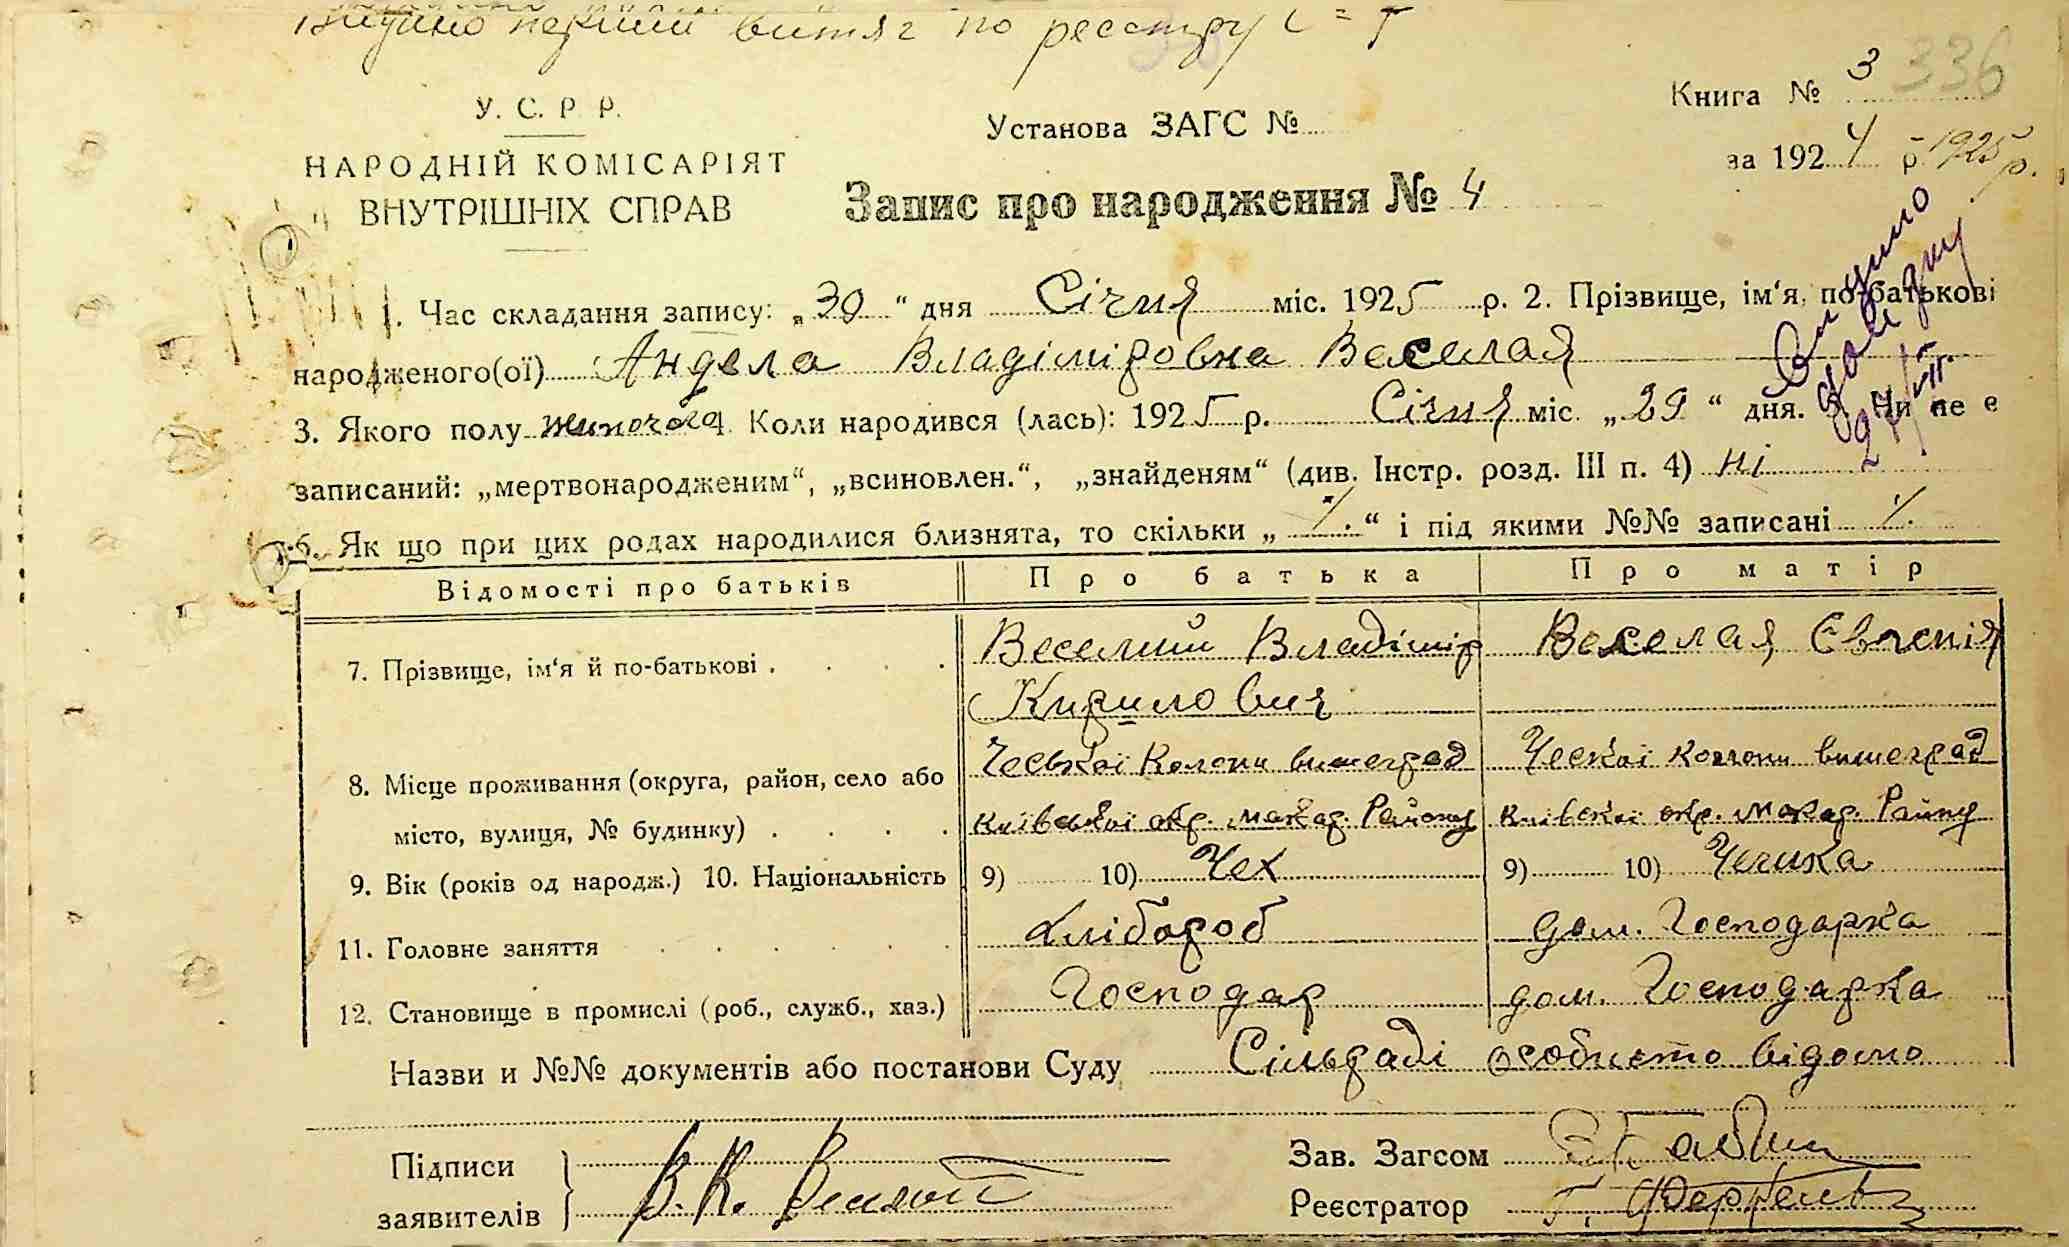 Видано перший витяг по реєстру
У. С. Р. Р.
НАРОДНІЙ КОМІСАРІЯТ
ВНУТРІШНІХ СПРАВ
Установа ЗАГС №
Книга № 3 336
за 1924 р. - 1925 р.
Запис про народження № 4
1. Час складання запису: „30“ дня Січня міс. 1925 р. 2. Прізвище, ім‘я, по-батькові
народженого(ої) Андела Владіміровна Веселая
3. Якого полу жиночога 4. Коли народився (лась): 1925 р. Січня міс. „29“ дня. 5. Чи не є
записаний: „мертвонародженим“, „всиновлен.“, „знайденям“ (див. Інстр. розд. III п. 4) ні
6. Як що при цих родах народилися близнята, то скільки „ “ і під якими №№ записані
Видано довідку 27/VII
Відомості про батьків Про батька Про матір
7. Прізвище, ім‘я й по-батькові . . . . Веселий Владімір Веселая Євгенія
Кирилович
8. Місце проживання (округа, район, село або Чеської Колони вишеград Ческої колони вишеград
місто, вулиця, № будинку) . . . . Київської окр. макар. Району Київскої окр. Макар. Райну
9. Вік (років од народж.) 10. Національність 9) 10) Чех 9) 10) Чешка
11. Головне заняття . . . . . . Хлібороб Дом. Господарка
12. Становище в промислі (роб., служб., хаз.) Господар дом. Господарка
Назви и №№ документів або постанови Суду Сільраді особисто відомо
Підписи
заявителів В. К.
Зав. Загсом
Реєстратор Г.